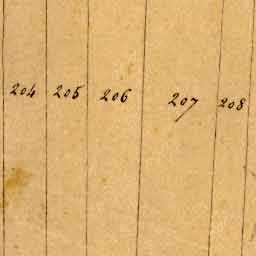 204 205 206 207 208